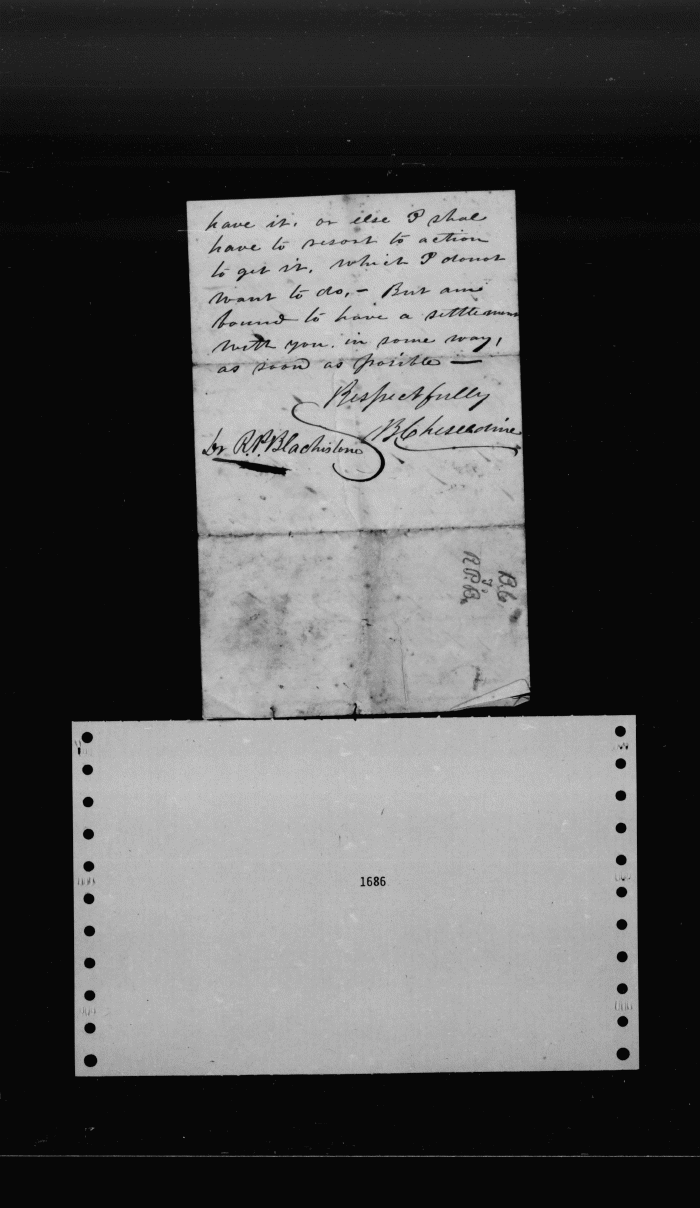 have it. or else I shal
have to resort to action
to get it. which I donot
want to do,- But ame
bound to have a settlement
with you. in some way,
as soon as posible —
Respectfully
B Cheseldine
Dr R.P. Blachistone
B.C.
to
R.P.B.
1686